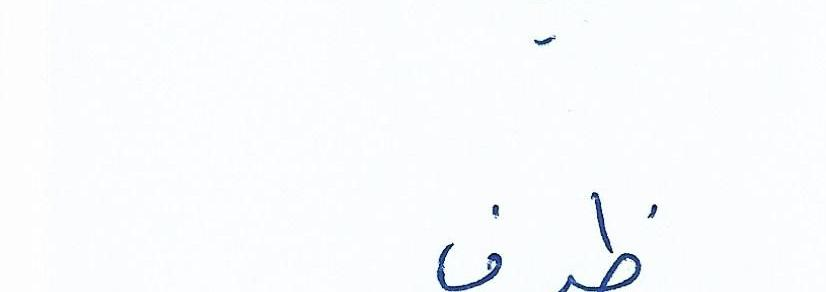 ظرف